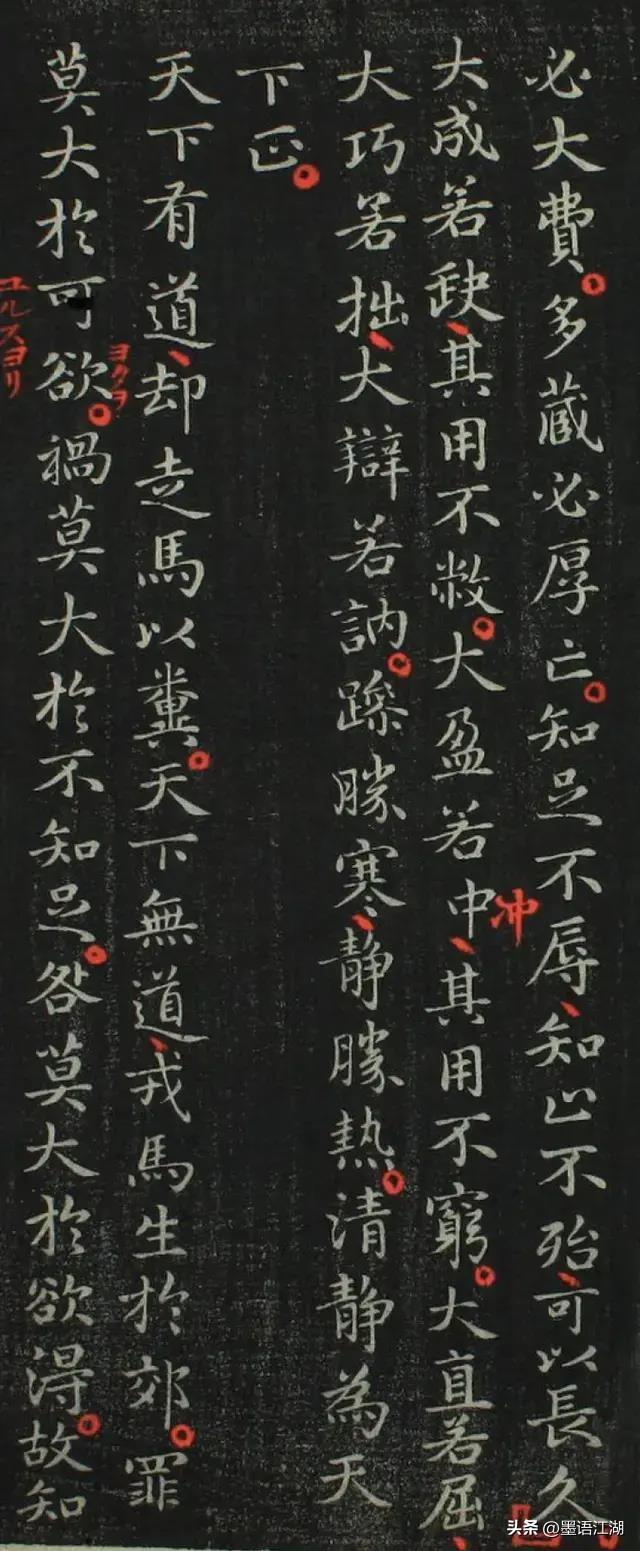 必大費。多蔵必厚亡。知足不辱、知止不殆、可以長久
大成若缺、其用不敝。大盈若中、其用不窮。大直若屈、
冲
大巧若拙、大辯若訥。躁勝寒、静勝熱。清静為天
下正。
天下有道、却走馬以糞。天下無道、戎馬生於郊。罪
莫大於可欲。禍莫大於不知足。咎莫大於欲得。故知
ヨクヲ
ユルスヨリ
头条 @墨语江湖